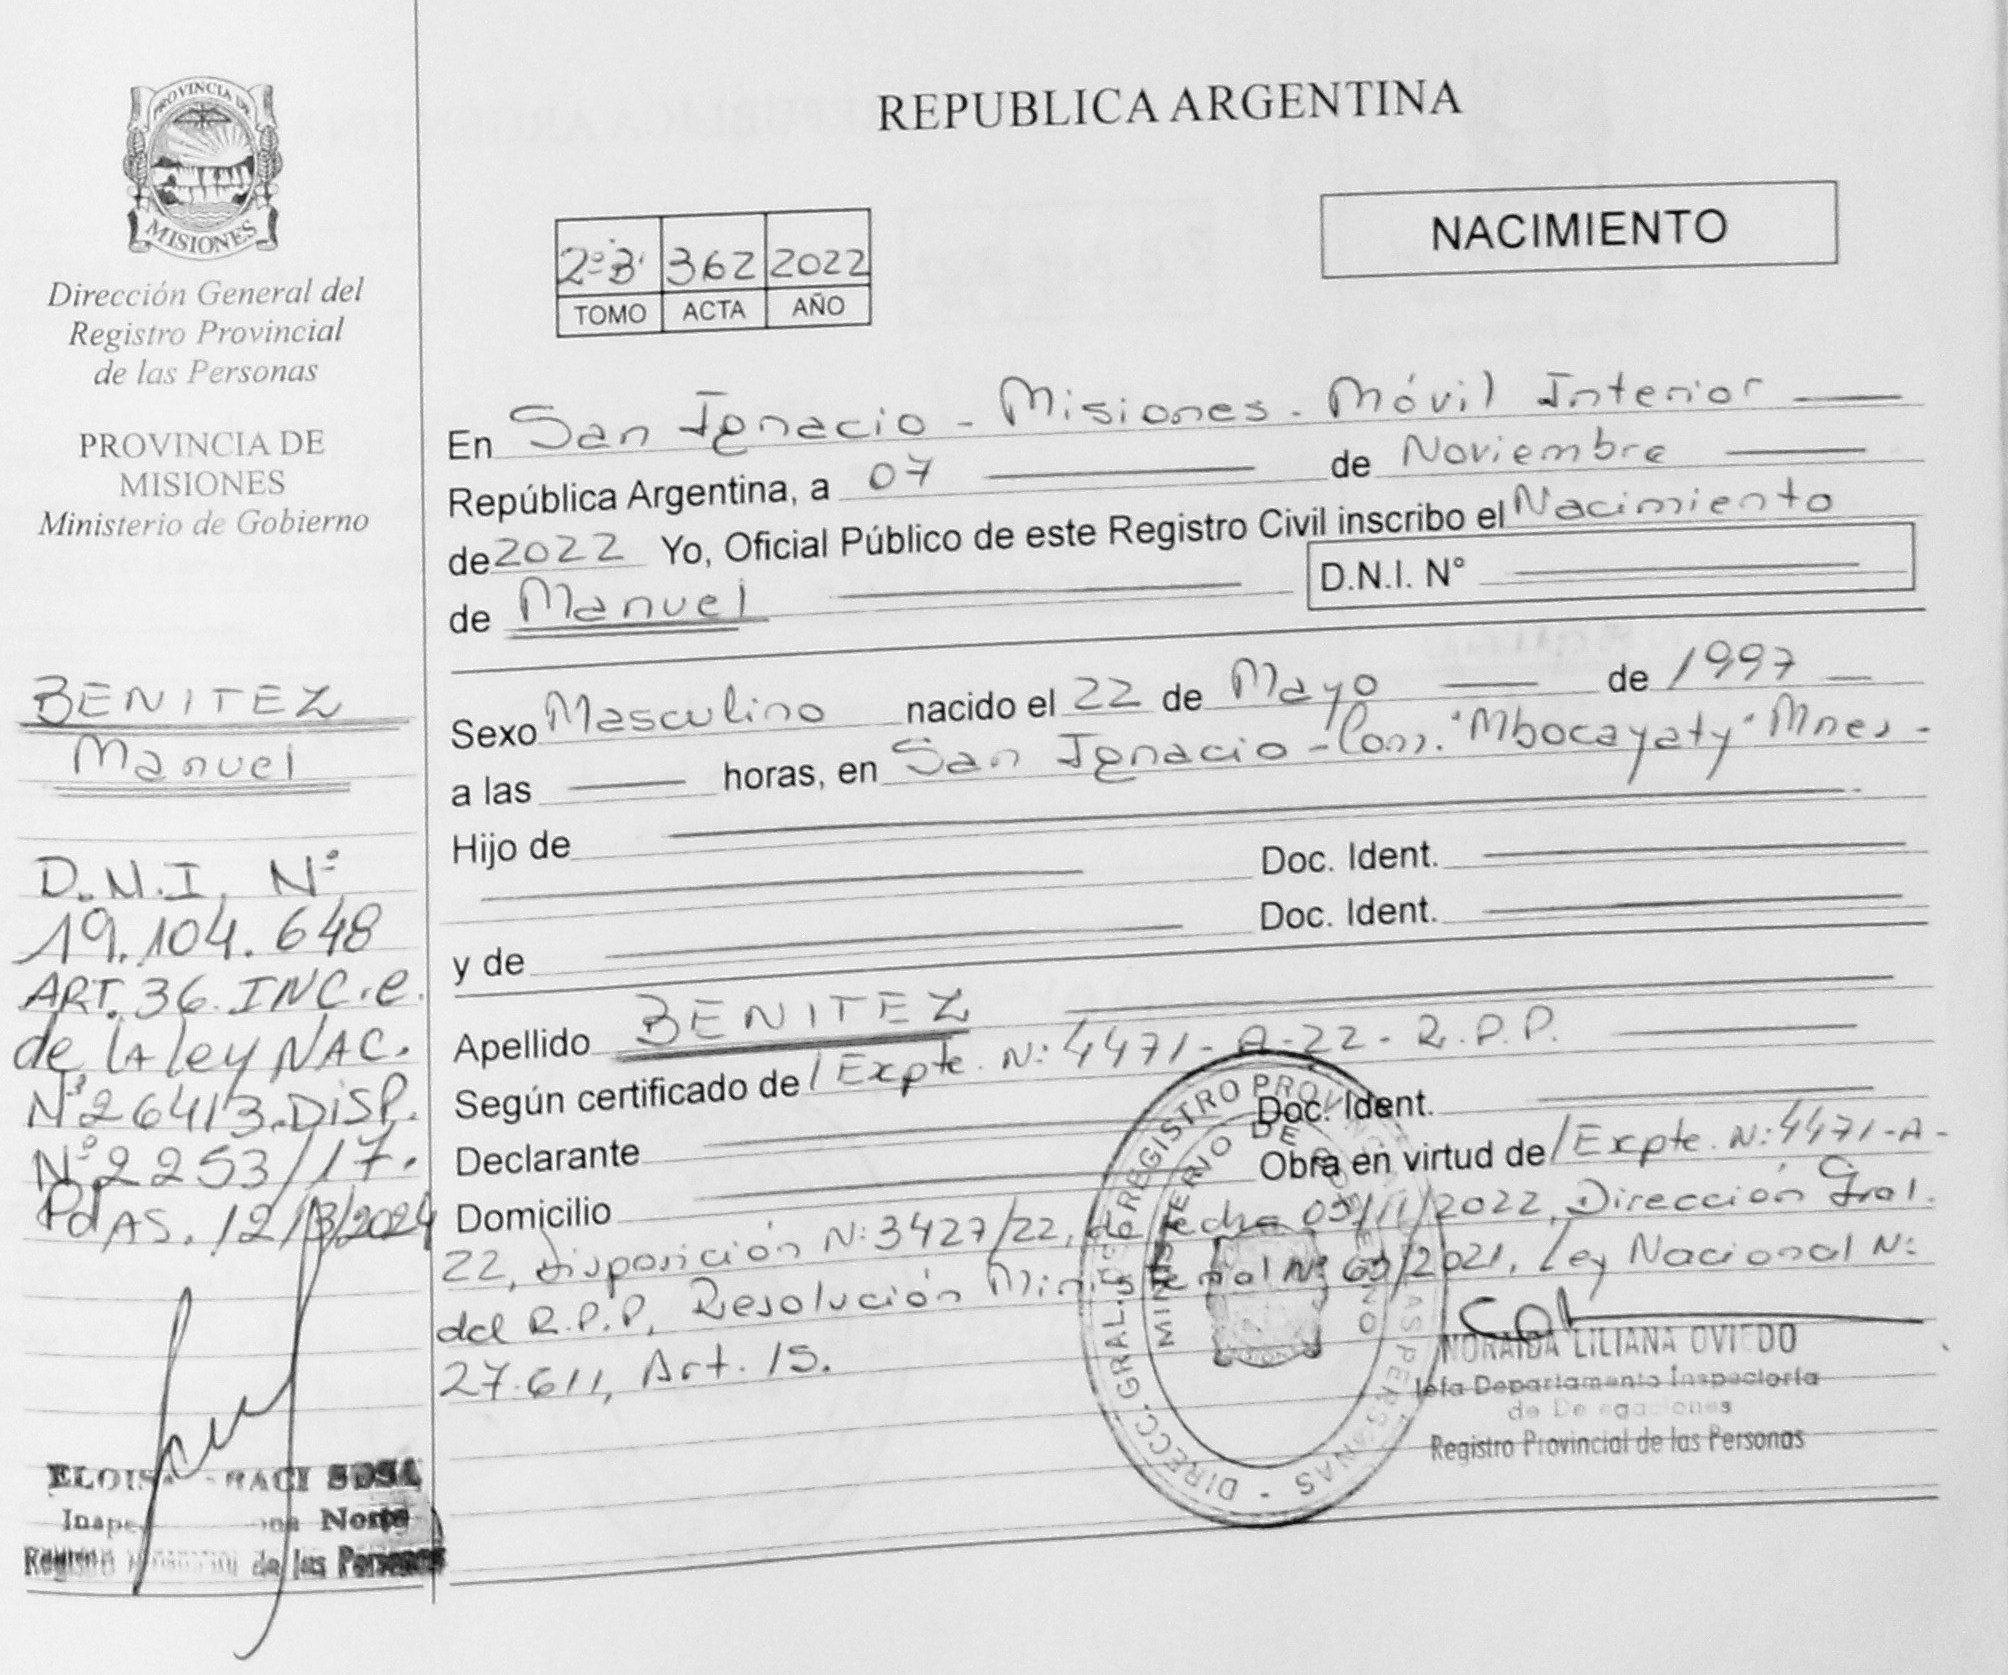 PROVINCIA DE
MISIONES
Dirección General del
Registro Provincial
de las Personas
PROVINCIA DE
MISIONES
Ministerio de Gobierno
BENITEZ
Manuel
D.N.I. Nº
19.104.648
ART. 36. INC. e.
de lA ley NAC.
Nº 26413. DISP.
Nº 2253/17.
PdAS. 12/3/2024
ELOISA SOSA
Norte
de las Personas
REPUBLICA ARGENTINA
NACIMIENTO
2º"B" 362 2022
TOMO ACTA AÑO
En San Ignacio - Misiones - Móvil Interior
República Argentina, a 07 de Noviembre
de 2022 Yo, Oficial Público de este Registro Civil inscribo el Nacimiento
de Manuel D.N.I. N°
Sexo Masculino nacido el 22 de Mayo de 1997
a las horas, en San Ignacio - Com. "Mbocayaty" Mnes -
Hijo de
Doc. Ident.
y de Doc. Ident.
Apellido BENITEZ
Según certificado de / Expte. N: 4471-A-22-R.P.P.
Declarante Doc. Ident.
Domicilio Obra en virtud de / Expte. N: 4471-A-
22, Disposición N: 3427/22, de fecha /11/2022, Dirección Gral.
del R.P.P, Resolución Ministerial Nº /2021, Ley Nacional N:
27.611, Art. 15.
DIRECC. GRAL. DEL REGISTRO PROVINCIAL DE LAS PERSONAS
MINISTERIO DE GOBIERNO
NORAIDA LILIANA OVIEDO
Jefa Departamento Inspectoría
de Delegaciones
Registro Provincial de las Personas